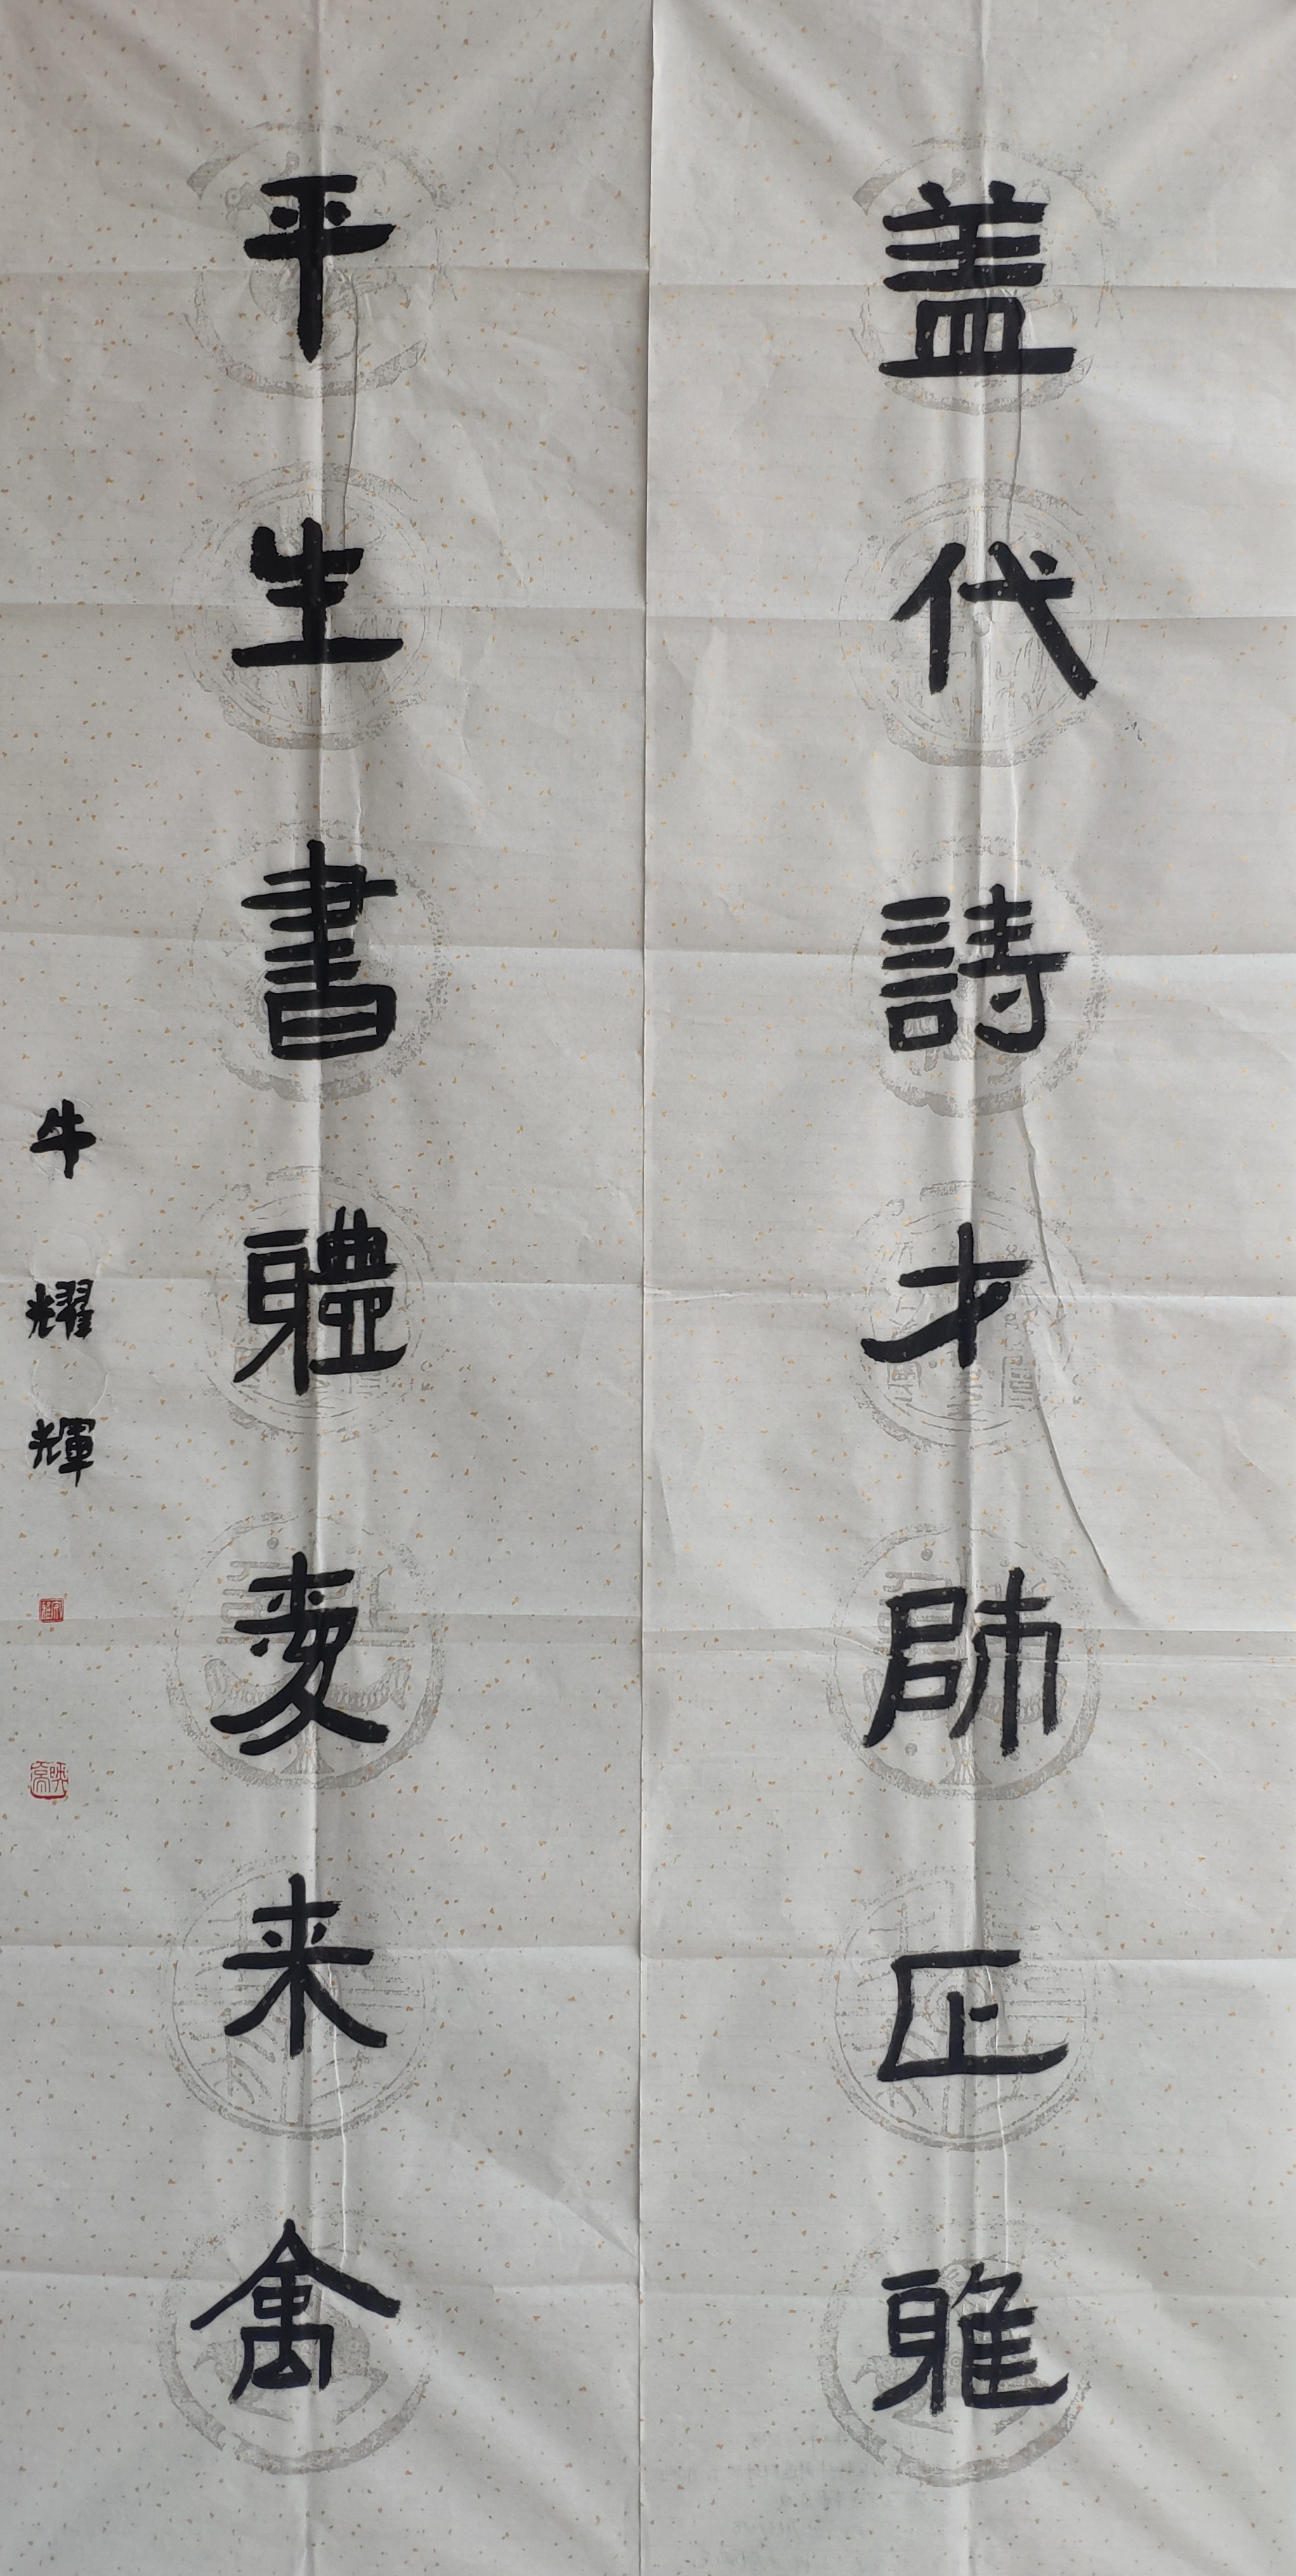 盖代詩才師正雅
平生書體愛来禽
牛耀輝